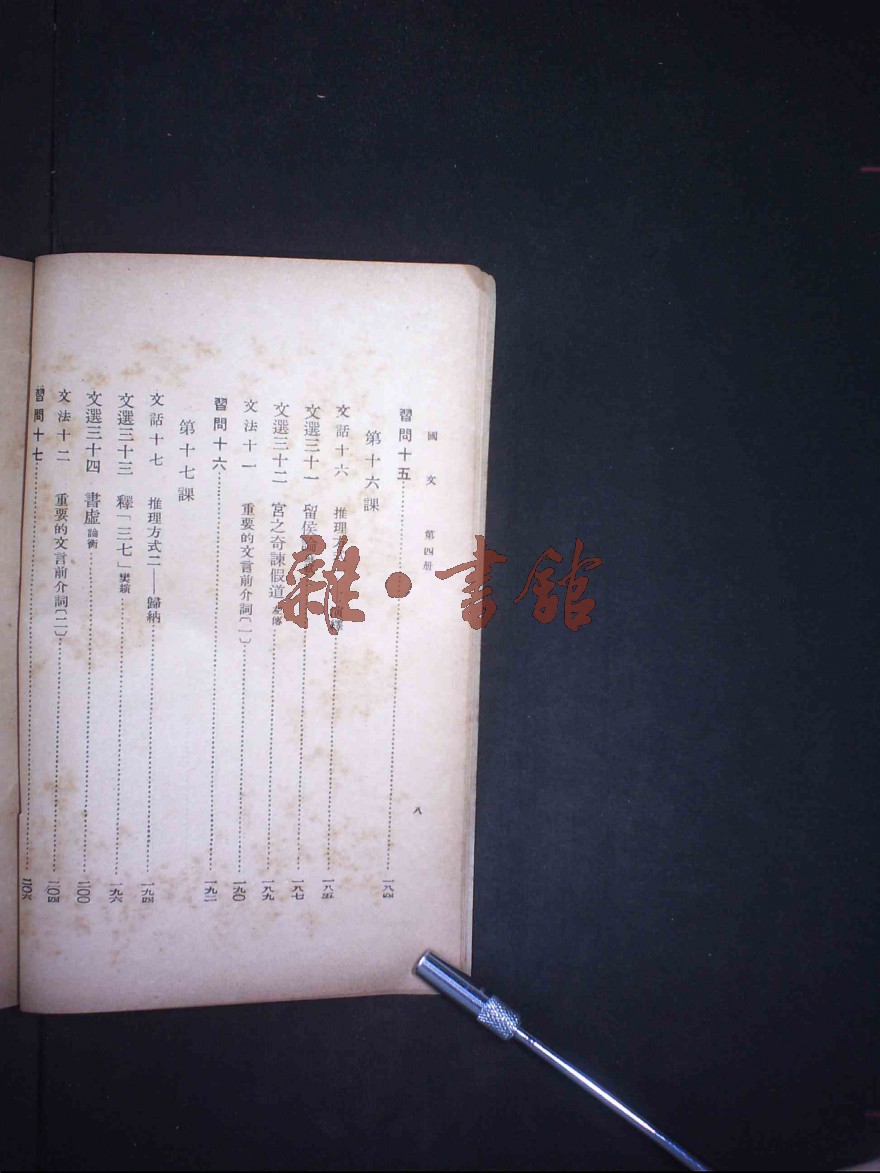 國文 第四册
八
習問十五……一八四
第十六課
文話十六 推理方……一八五
文選三十一 留侯論……一八七
文選三十二 宮之奇諫假道 左傳……一八九
文法十一 重要的文言前介詞〔一〕……一九〇
習問十六……一九二
第十七課
文話十七 推理方式二——歸納……一九四
文選三十三 釋「三七」 樊縯……一九六
文選三十四 書虛 論衡……二〇〇
文法十二 重要的文言前介詞〔二〕……二〇四
習問十七……二〇六
雜·書館